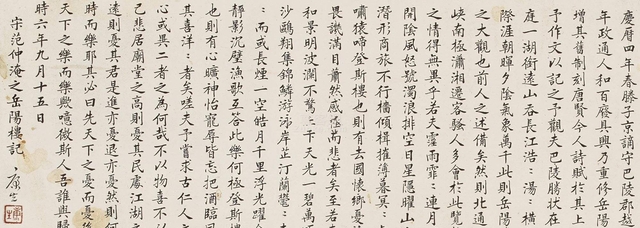 慶曆四年春滕子京謫守巴陵郡越
年政通人和百廢具興乃重修岳陽樓
增其舊制刻唐賢今人詩賦於其上
予作文以記之予觀夫巴陵勝狀在
庭一湖銜遠山吞長江浩:湯:橫
際涯朝暉夕陰氣象萬千此則岳陽
之大觀也前人之述備矣然則北通
峽南極瀟湘遷客騷人多會於此覽
之情得無異乎若夫霪雨霏:連月
開陰風怒號濁浪排空日星隱曜山
潛形商旅不行檣傾楫摧薄暮冥:
嘯猿啼登斯樓也則有去國懷鄉憂
畏譏滿目蕭然感極而悲者矣至若春
和景明波瀾不驚上下天光一碧萬
沙鷗翔集錦鱗游泳岸芷汀蘭鬱:
:而或長煙一空皓月千里浮光躍
靜影沉壁漁歌互答此樂何極登斯樓
也則有心曠神怡寵辱皆忘把酒臨
其喜洋:者矣嗟夫予嘗求古仁人
心或異二者之為何哉不以物喜不以
己悲居廟堂之高則憂其民處江湖之
遠則憂其君是進亦憂退亦憂然則何
時而樂耶其必曰先天下之憂而憂後
天下之樂而樂歟噫微斯人吾誰與歸
時六年九月十五日
宋范仲淹之岳陽樓記